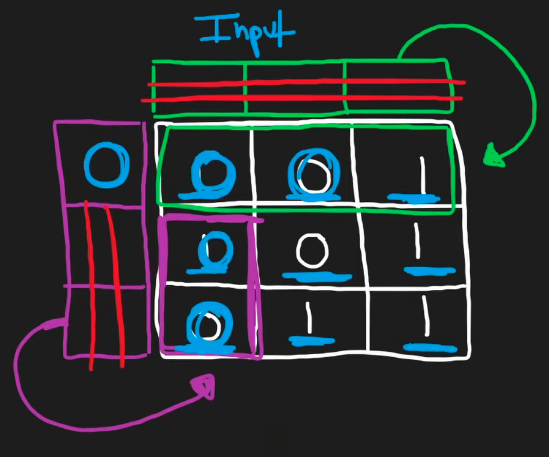 Input
0 0 0 1
0 0 1
0 1 1